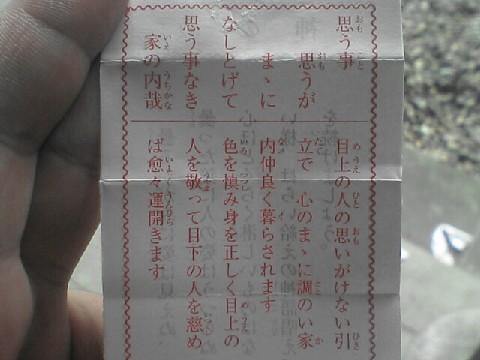 思う事
思うが
まゝに
なしとげて
思う事なき
家の内哉
目上の人の思いがけない引
立で 心のまゝに調のい家
内仲良く暮らされます
色を慎み身を正しく目上の
人を敬って目下の人を慈め
ば愈々運開きます